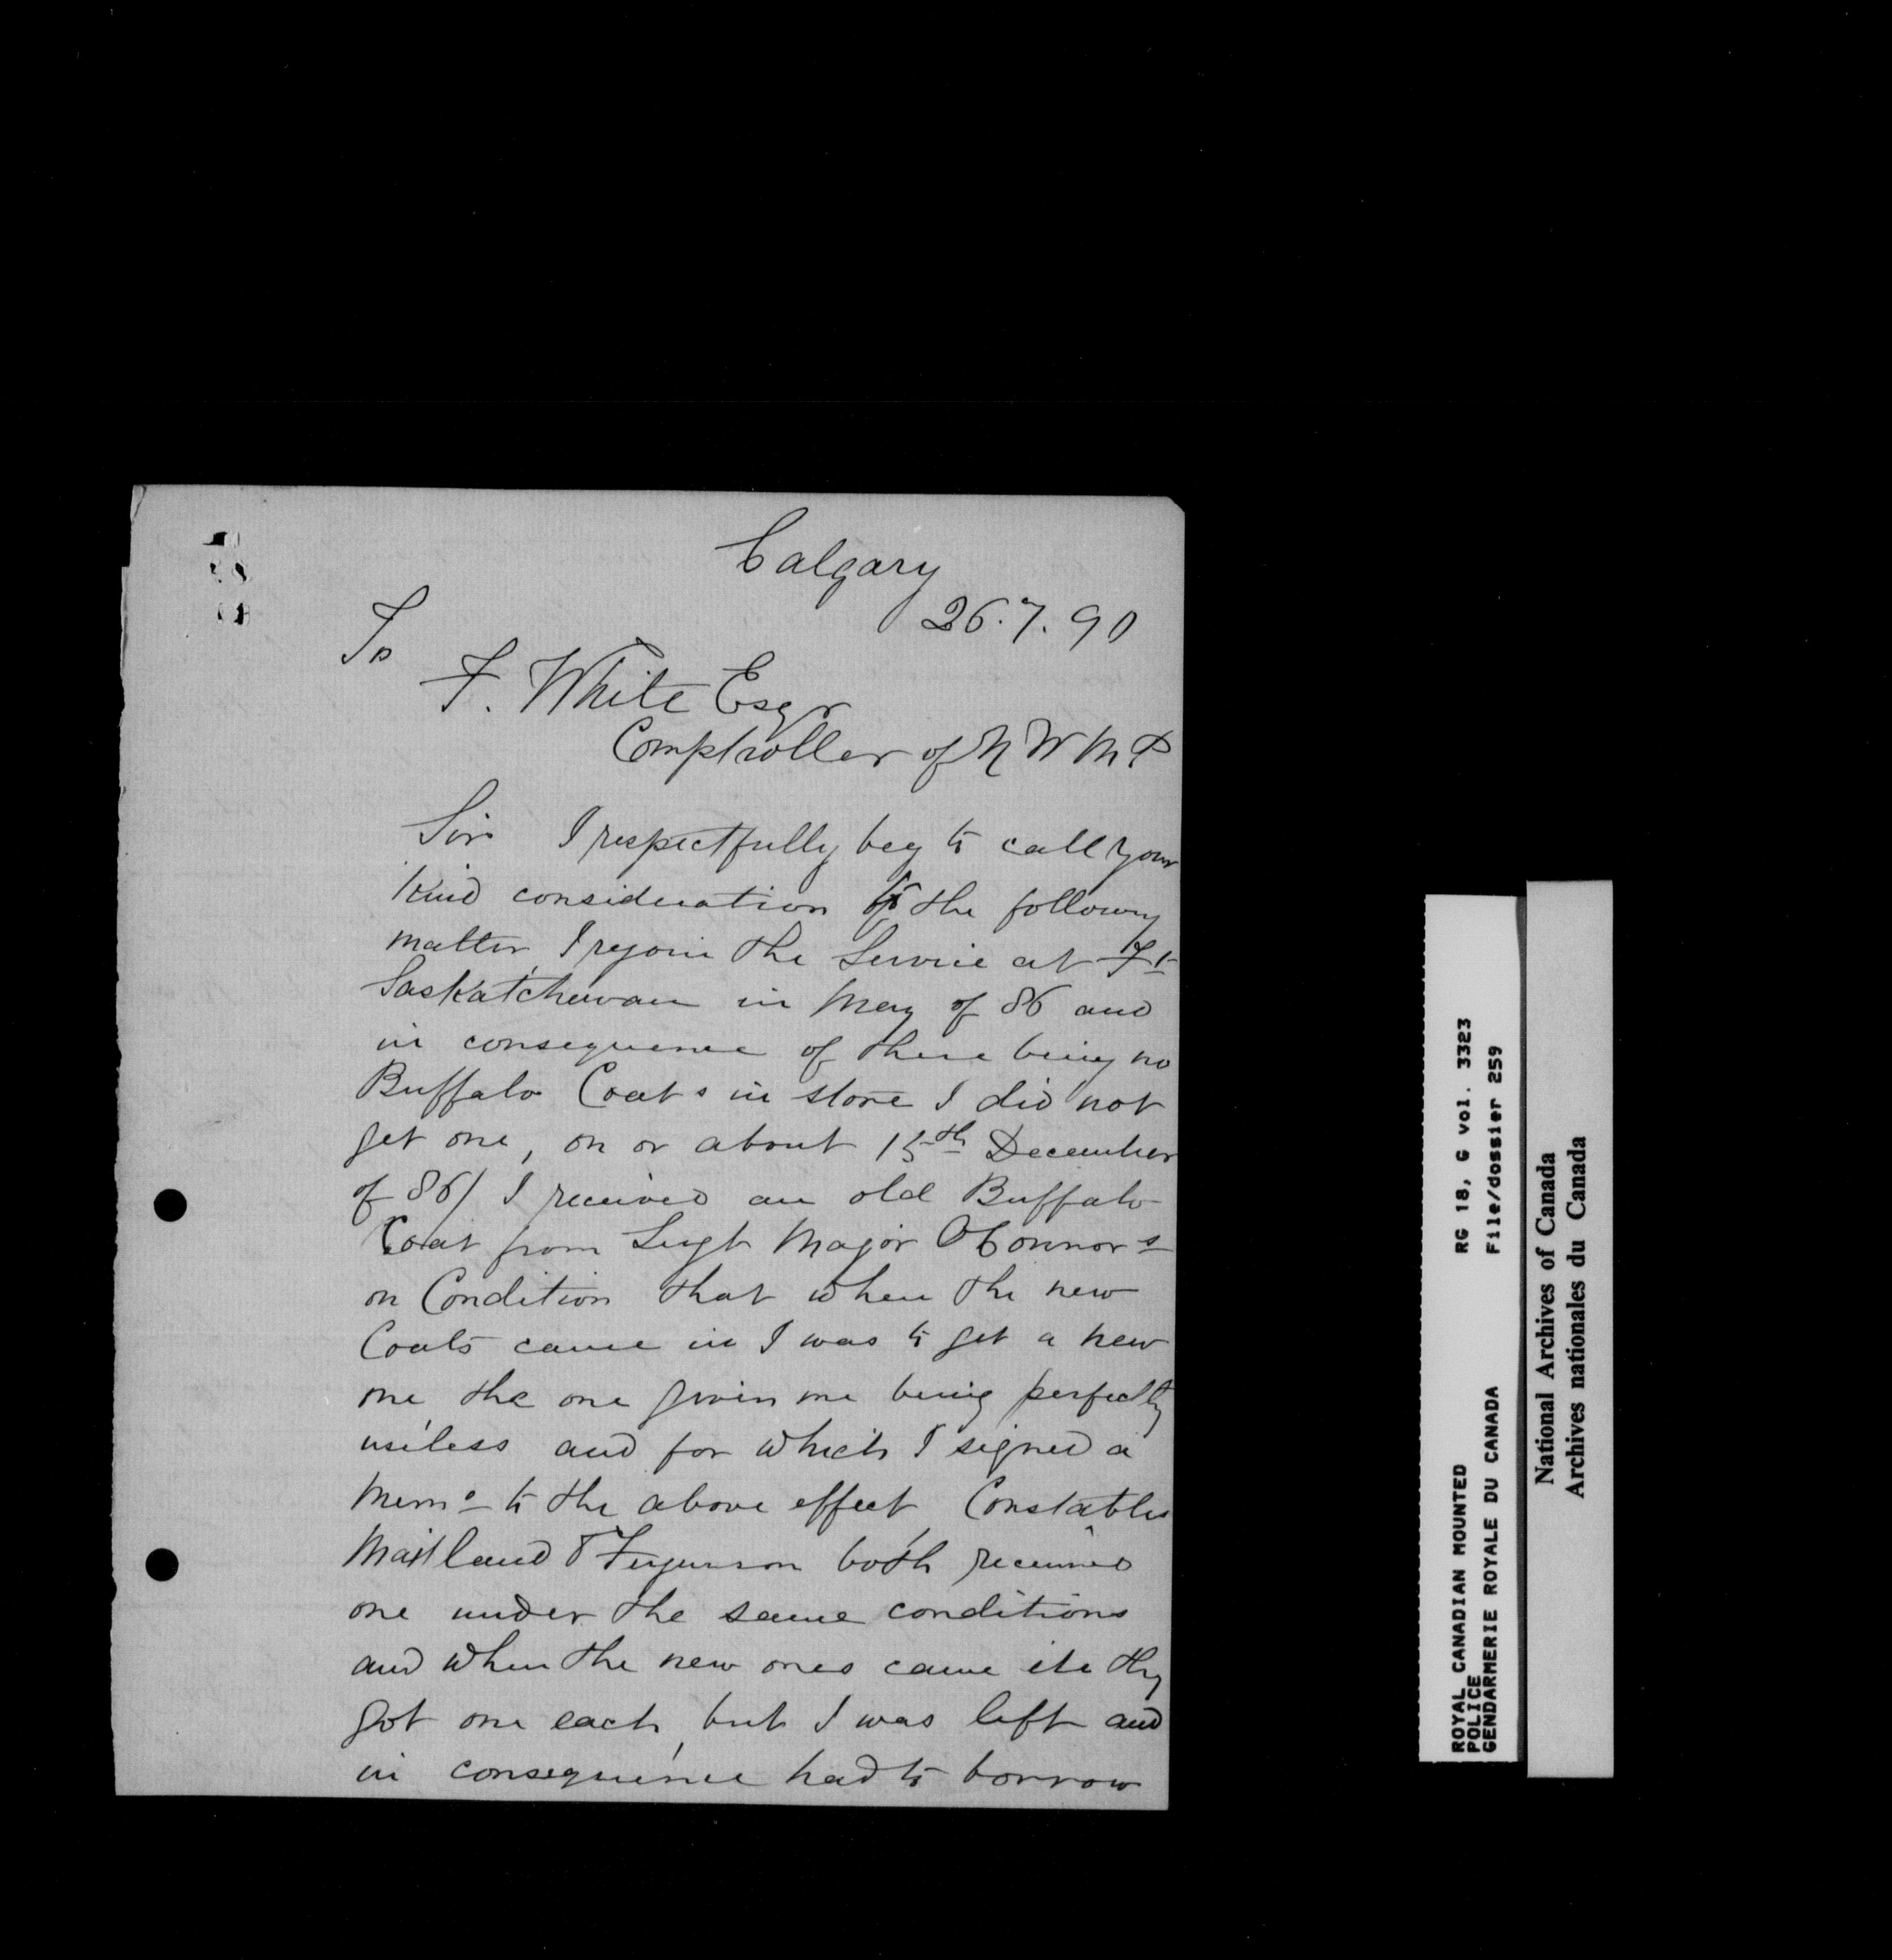 Calgary
26.7.90
To
F. White Esqr
Comptroller of N W M P
Sir I respectfully beg to call your
kind consideration to the following
matter, I rejoin the Service at Ft
Saskatchewan in May of 86 and
in consequence of there being no
Buffalo Coats in store I did not
get one, on or about 15th December
of 86/ I received an old Buffalo
Coat from Sergt Major O'Connor
on Condition that when the new
Coats came in I was to get a new
one, the one given me being perfectly
useless and for which I signed a
Memo to the above effect, Constables
Maitland & Ferguson both received
one under the same conditions
and when the new ones came in they
got one each, but I was left and
in consequence had to borrow
ROYAL CANADIAN MOUNTED
POLICE
GENDARMERIE ROYALE DU CANADA
RG 18, G vol. 3323
File/dossier 259
National Archives of Canada
Archives nationales du Canada